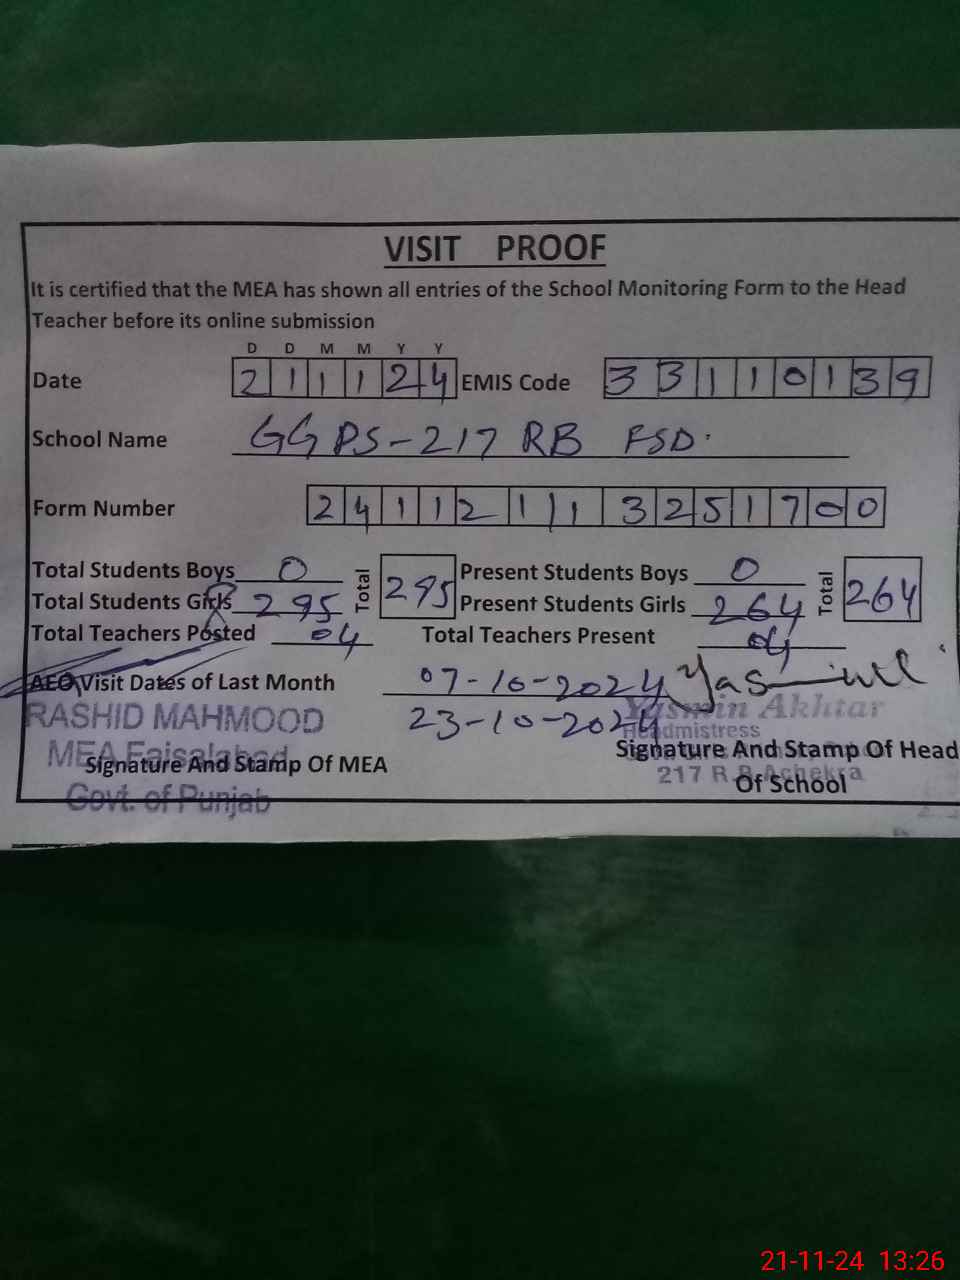 VISIT PROOF
It is certified that the MEA has shown all entries of the School Monitoring Form to the Head
Teacher before its online submission
D D M M Y Y
Date 211124 EMIS Code 33110139
School Name GGPS-217 RB FSD.
Form Number 24112113251700
Total Students Boys 0 Total 295 Present Students Boys 0 Total 264
Total Students Girls 295 Present Students Girls 264
Total Teachers Posted 04 Total Teachers Present 04
AEO Visit Dates of Last Month 07-10-2024
23-10-2024
RASHID MAHMOOD
MEA Faisalabad
Govt. of Punjab
Signature And Stamp Of MEA
Yasmin Akhtar
Headmistress
217 R.B Achekra
Signature And Stamp Of Head
Of School
21-11-24 13:26